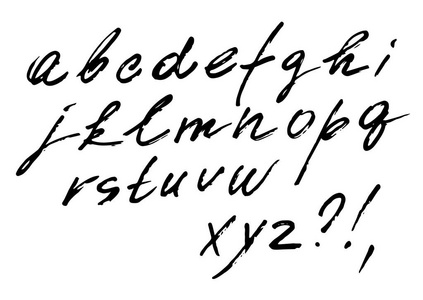 a b c d e f g h i
j k l m n o p q
r s t u v w
x y z ? ! ,